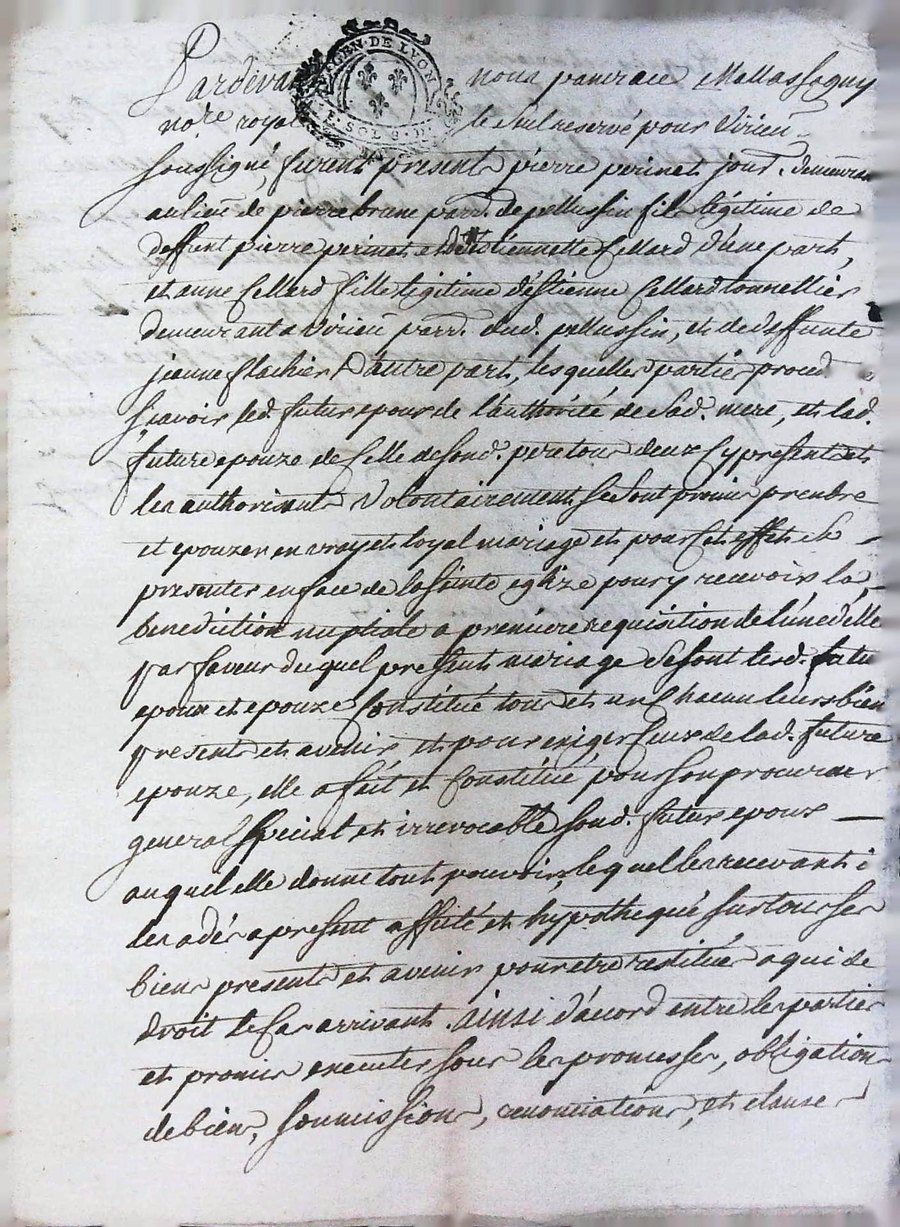 GEN. DE LYON
SOL
Pardevant nous pancrace Mallassagny
no.re royal reservé pour Virieu
soussigné, furent present pierre perinet jour. demeurant
au lieu de pierre brune parr. de pellussin fils légitime de
deffunt pierre perinet et d'Etiennette Cellard d'une part,
et anne Cellard fille légitime d'éstienne Cellard tonnellier
demeurant a virieu parr. dud. pellussin, et de deffunte
jeanne flachier D'autre part, lesquelles partier proced
sçavoir led. futur epour de l'authorité de Sad. mere, et lad.
future epouze de Celle de Sond. pere tour deux Cy present et
les authorisant Volontairement se sont promir prendre
et epouzer en vray et loyal mariage et pour Cet effet se
presenter en face de la Sainte eglize pour y recevoir la
benediction nuptiale a premiere requisition de l'une d'elle
par faveur du quel present mariage Se sont lesd. futur
epoux et epouze Constitué tour et un Chacun leurs bien
present et avenir et pour exiger Ceux de lad. future
epouze, elle a fait et Constitué pour Son procureur
general special et irrevocable Sond. futur epoux
auquel elle donne tout pouvoir, lequel les recevant
les a dés a present affecté et hypothequé sur tour ses
biens present et avenir pour etre restitué a qui de
droit le Cas arrivant. ainsi d'accord entre les partier
et promir executer sour les promesses, obligation
de bien, soumission, renonciation, et clauser